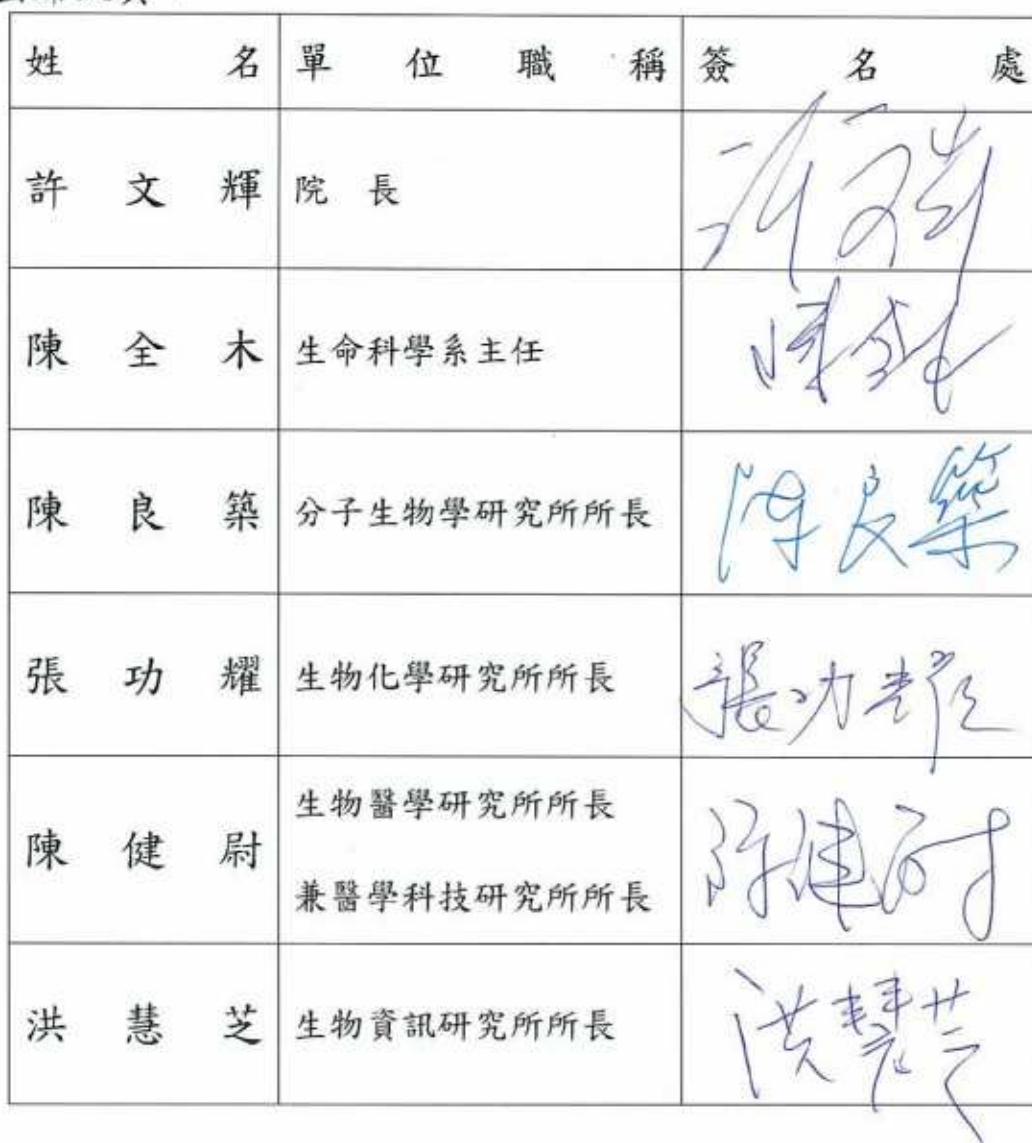 姓名 單位職稱 簽名處
許文輝 院長
陳全木 生命科學系主任 陳全木
陳良築 分子生物學研究所所長 陳良築
張功耀 生物化學研究所所長 張功耀
陳健尉 生物醫學研究所所長
兼醫學科技研究所所長 陳健尉
洪慧芝 生物資訊研究所所長 洪慧芝